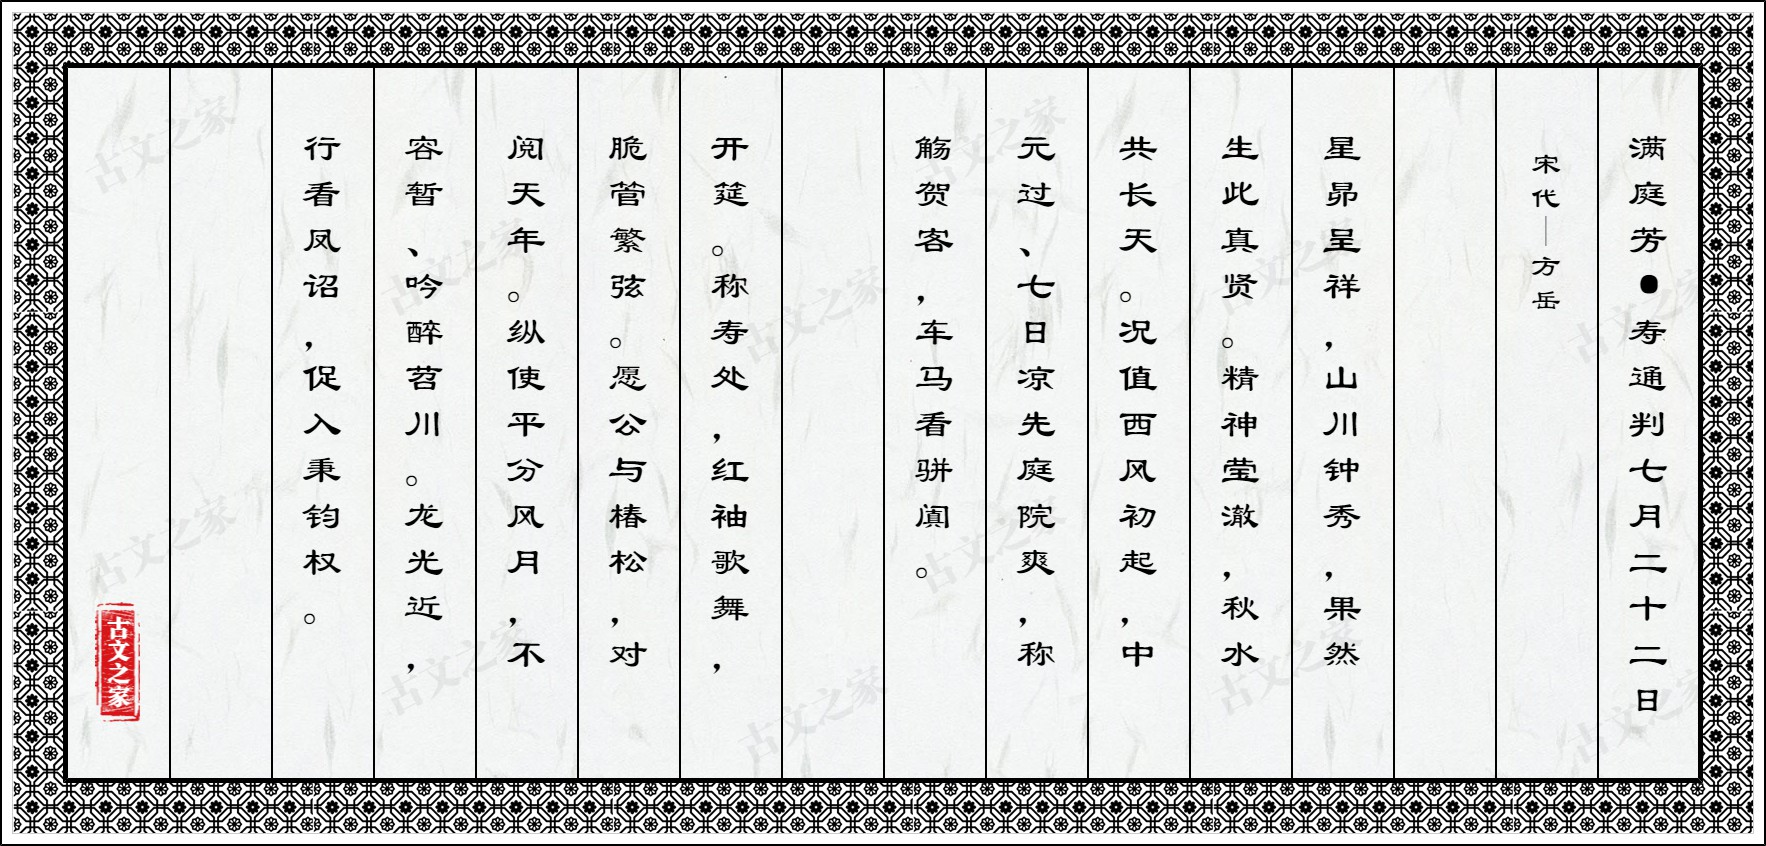 满庭芳●寿通判七月二十二日
宋代—方岳
星昴呈祥，山川钟秀，果然
生此真贤。精神莹澈，秋水
共长天。况值西风初起，中
元过、七日凉先庭院爽，称
觞贺客，车马看骈阗。
开筵。称寿处，红袖歌舞，
脆管繁弦。愿公与椿松，对
阅天年。纵使平分风月，不
容暂、吟醉苕川。龙光近，
行看凤诏，促入秉钧权。
古文之家